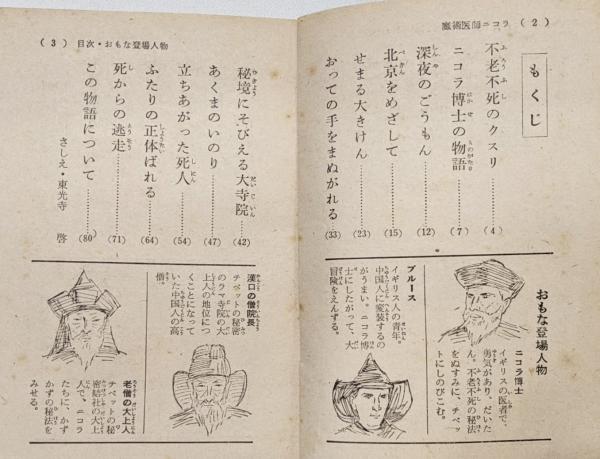 魔術医師ニコラ ( 2 )
もくじ
不老不死のクスリ………( 4 )
ニコラ博士の物語………( 7 )
深夜のごうもん………(12)
北京をめざして………(15)
せまる大きけん………(23)
おっての手をまぬがれる………(33)
おもな登場人物
ニコラ博士
イギリスの医者で、
勇気があり、だいた
ん。不老不死の秘法
をぬすみに、チベッ
トにしのびこむ。
ブルース
イギリス人の青年。
中国人に変装するの
がうまい。ニコラ博
士にしたがって、大
冒険をえんずる。
( 3 ) 目次・おもな登場人物
秘境にそびえる大寺院………(42)
あくまのいのり………(47)
立ちあがった死人………(54)
ふたりの正体ばれる………(64)
死からの逃走………(71)
この物語について………(80)
さしえ・東光寺 啓
漢口の僧院長
チベットの秘密
のラマ寺院の大
上人の地位につ
くことになって
いた中国人の高
僧。
老僧の大上人
チベットの秘
密結社の大上
人で、ニコラ
たちに、かず
かずの秘法を
みせる。